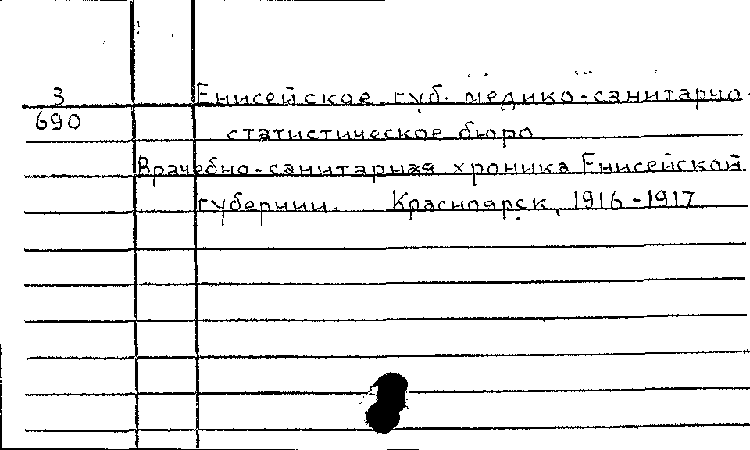 З Енисейское губ. медико-санитарно-
690 статистическое бюро
Врачебно-санитарная хроника Енисейской
губернии. Красноярск, 1916-1917